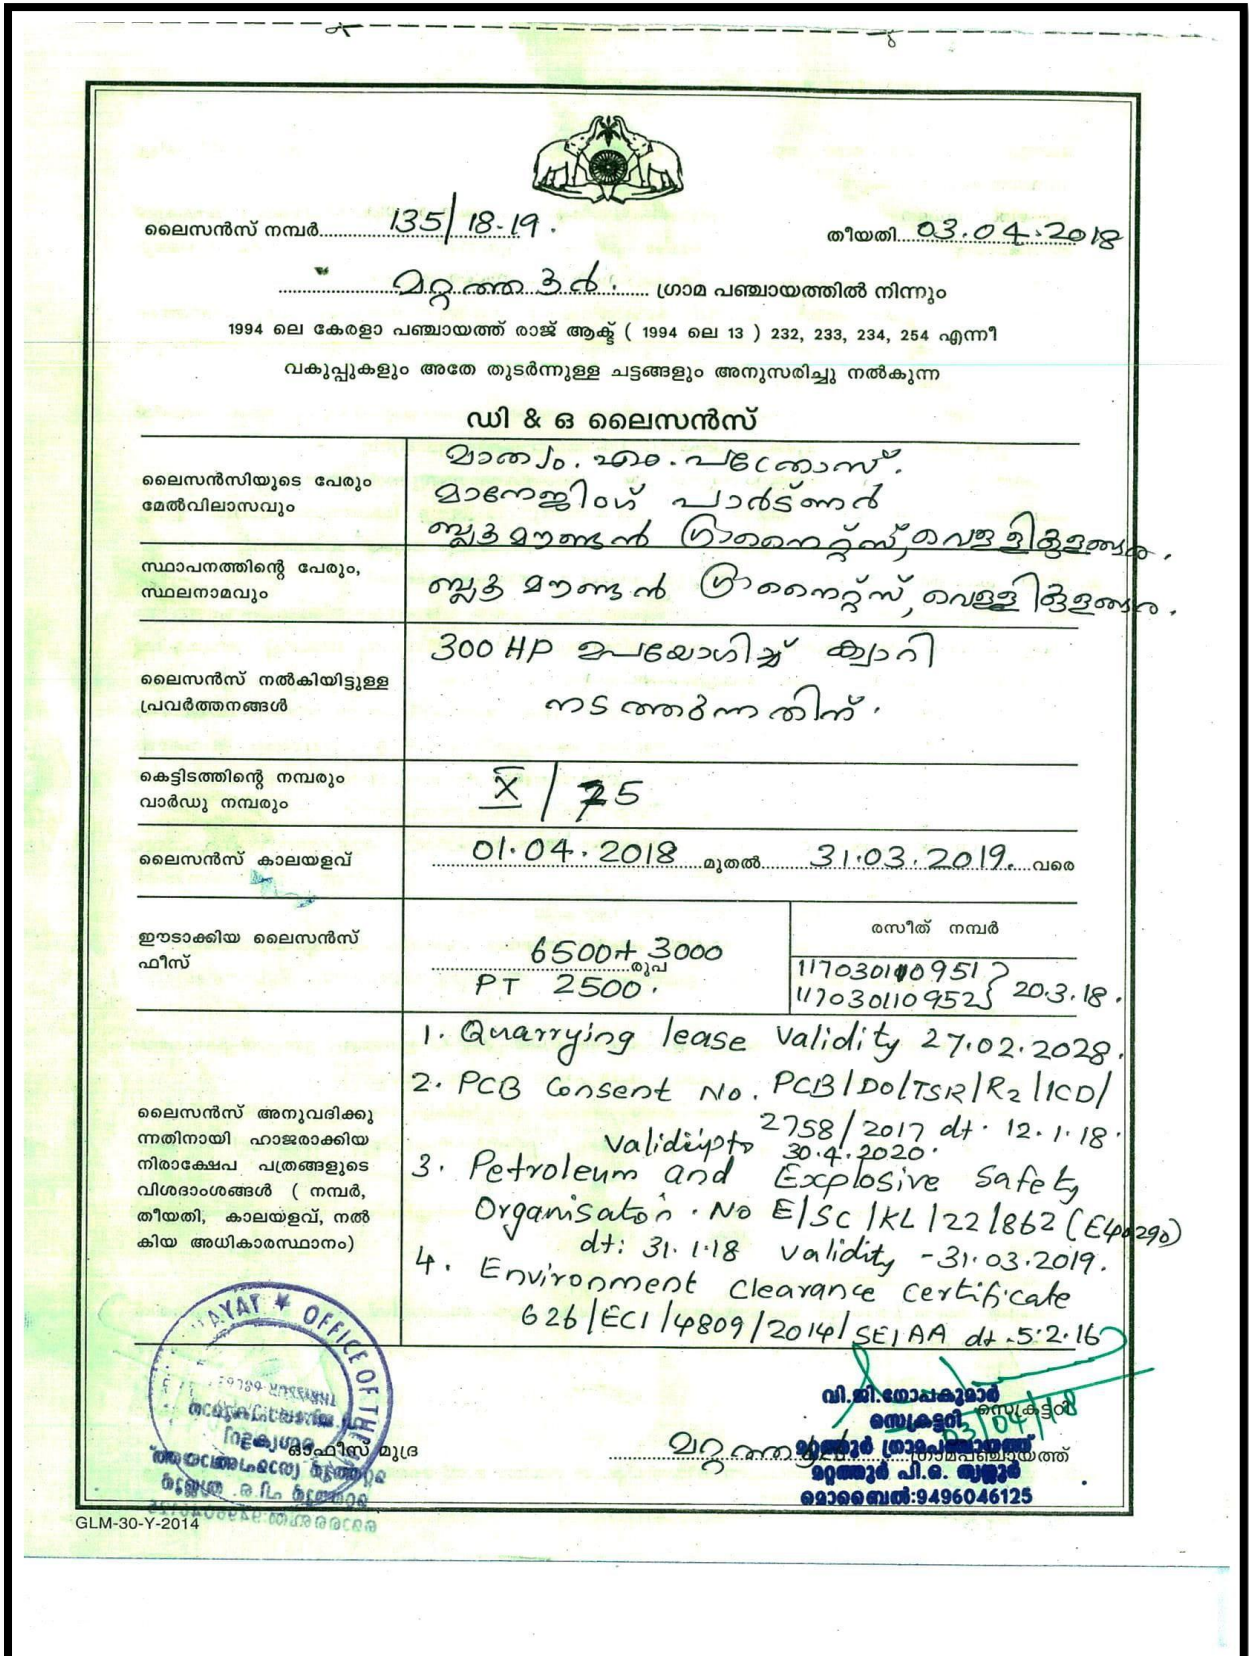 ലൈസൻസ് നമ്പർ 135/18-19. തീയതി 03.04.2018
മറ്റത്തൂർ. ഗ്രാമ പഞ്ചായത്തിൽ നിന്നും
1994 ലെ കേരളാ പഞ്ചായത്ത് രാജ് ആക്ട് ( 1994 ലെ 13 ) 232, 233, 234, 254 എന്നീ
വകുപ്പുകളും അതേ തുടർന്നുള്ള ചട്ടങ്ങളും അനുസരിച്ചു നൽകുന്ന
ഡി & ഒ ലൈസൻസ്
ലൈസൻസിയുടെ പേരും
മേൽവിലാസവും
മാനേജിംഗ് പാർട്ണർ
ബ്ലൂ മൗണ്ടൻ ഗ്രാനൈറ്റ്സ്, വെള്ളിക്കുളങ്ങര.
സ്ഥാപനത്തിന്റെ പേരും,
സ്ഥലനാമവും
ബ്ലൂ മൗണ്ടൻ ഗ്രാനൈറ്റ്സ്, വെള്ളിക്കുളങ്ങര.
ലൈസൻസ് നൽകിയിട്ടുള്ള
പ്രവർത്തനങ്ങൾ
300 HP ഉപയോഗിച്ച് ക്വാറി
നടത്തുന്നതിന്.
കെട്ടിടത്തിന്റെ നമ്പരും
വാർഡു നമ്പരും
X / 75
ലൈസൻസ് കാലയളവ് 01.04.2018 മുതൽ 31.03.2019. വരെ
ഈടാക്കിയ ലൈസൻസ്
ഫീസ്
6500+ 3000
രൂപ
PT 2500.
രസീത് നമ്പർ
117030110951
117030110952 } 20.3.18.
ലൈസൻസ് അനുവദിക്കു
ന്നതിനായി ഹാജരാക്കിയ
നിരാക്ഷേപ പത്രങ്ങളുടെ
വിശദാംശങ്ങൾ ( നമ്പർ,
തീയതി, കാലയളവ്, നൽ
കിയ അധികാരസ്ഥാനം)
1. Quarrying lease validity 27.02.2028.
2. PCB Consent No. PCB/DO/TSR/R2/ICD/
2758/2017 dt. 12.1.18.
Validupto 30.4.2020.
3. Petroleum and Explosive Safety
Organisation. No E/SC/KL/22/862 (E40290)
dt: 31.1.18 validity -31.03.2019.
4. Environment Clearance Certificate
626/EC1/4809/2014/SEIAA dt.5.2.16
AYAT * OFFICE OF THE
വി.ജി.ഗോപകുമാർ
സെക്രട്ടറി
സെക്രട്ടറി
03/04/18
ഓഫീസ് മുദ്ര
മറ്റത്തൂർ ഗ്രാമപഞ്ചായത്ത്
മറ്റത്തൂർ ഗ്രാമപഞ്ചായത്ത്
മറ്റത്തൂർ പി.ഒ. തൃശ്ശൂർ
മൊബൈൽ:9496046125
GLM-30-Y-2014